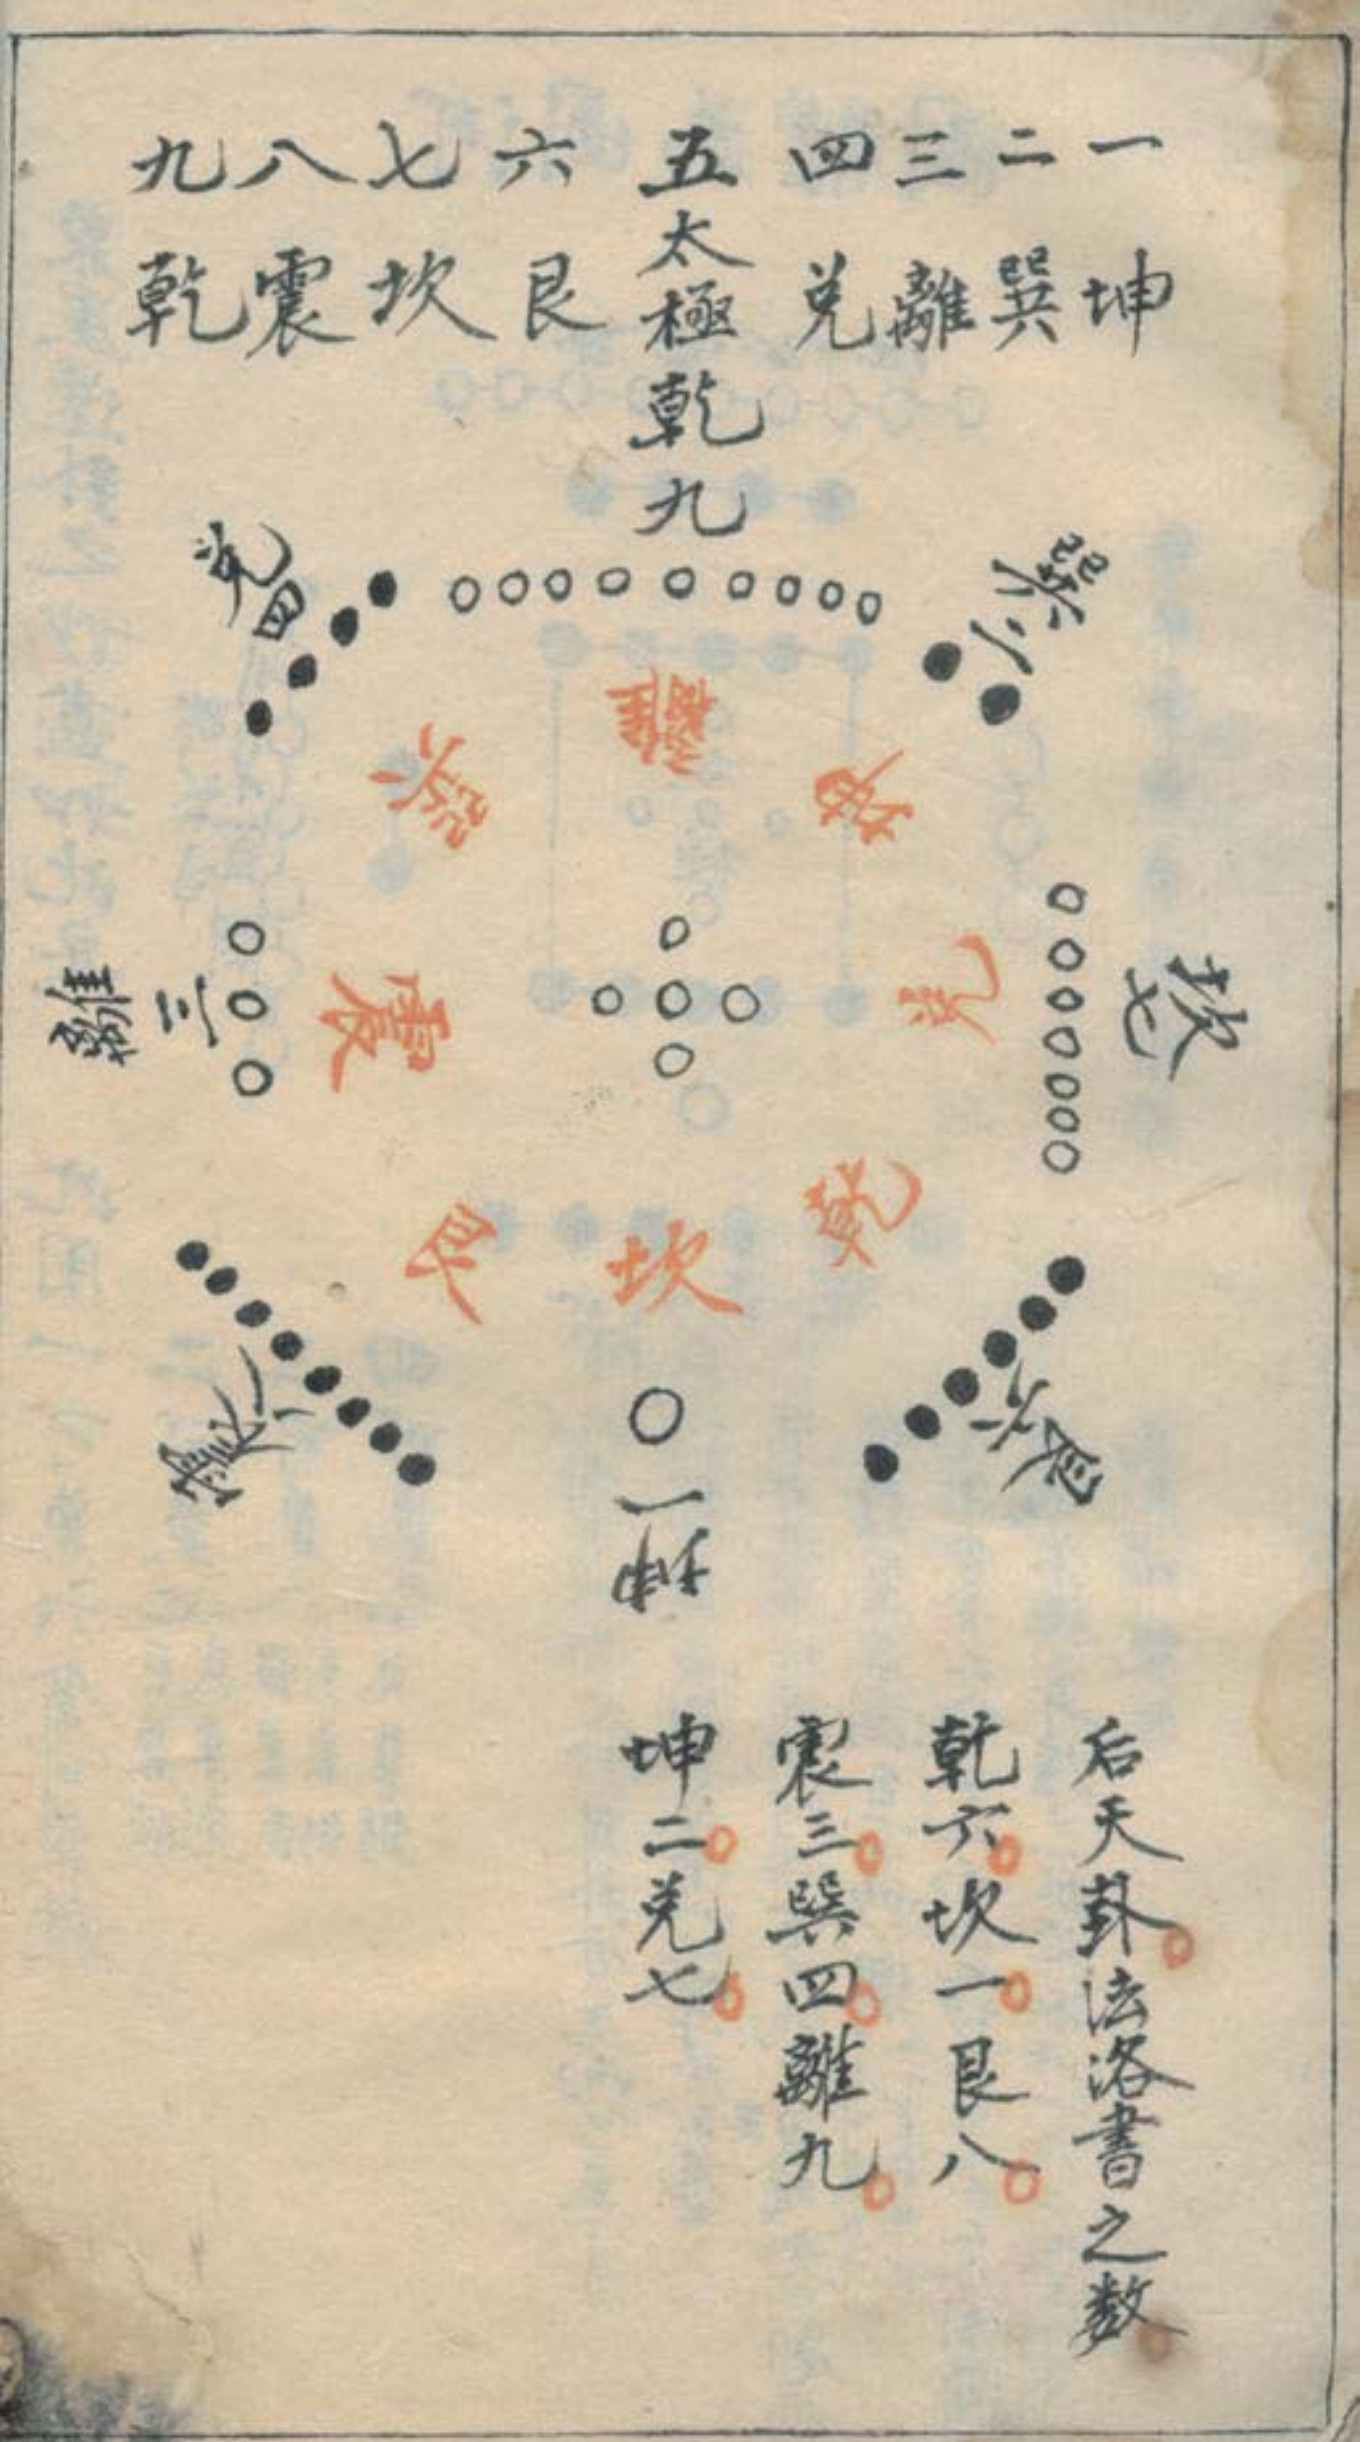 一坤
二巽
三離
四兌
五太極
六艮
七坎
八震
九乾
乾九
巽二
坎七
艮六
一坤
震八
離三
兌四
離
坤
兌
乾
坎
艮
震
巽
后天卦法洛書之数
乾六坎一艮八
震三巽四離九
坤二兌七